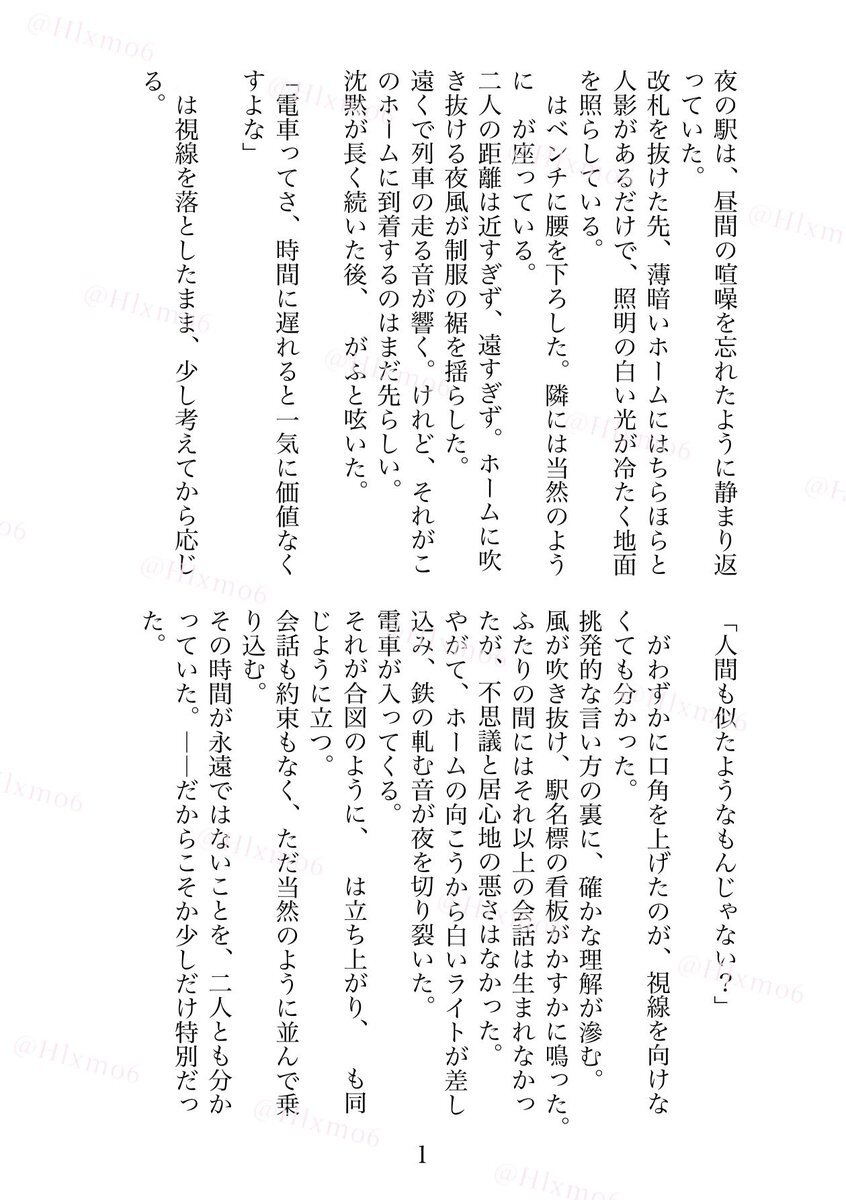 夜の駅は、昼間の喧噪を忘れたように静まり返
っていた。
改札を抜けた先、薄暗いホームにはちらほらと
人影があるだけで、照明の白い光が冷たく地面
を照らしている。
　はベンチに腰を下ろした。隣には当然のよう
に　が座っている。
二人の距離は近すぎず、遠すぎず。ホームに吹
き抜ける夜風が制服の裾を揺らした。
遠くで列車の走る音が響く。けれど、それがこ
のホームに到着するのはまだ先らしい。
沈黙が長く続いた後、　がふと呟いた。
「電車ってさ、時間に遅れると一気に価値なく
すよな」
　は視線を落としたまま、少し考えてから応じ
る。
「人間も似たようなもんじゃない？」
　がわずかに口角を上げたのが、視線を向けな
くても分かった。
挑発的な言い方の裏に、確かな理解が滲む。
風が吹き抜け、駅名標の看板がかすかに鳴った。
ふたりの間にはそれ以上の会話は生まれなかっ
たが、不思議と居心地の悪さはなかった。
やがて、ホームの向こうから白いライトが差し
込み、鉄の軋む音が夜を切り裂いた。
電車が入ってくる。
それが合図のように、　は立ち上がり、　も同
じように立つ。
会話も約束もなく、ただ当然のように並んで乗
り込む。
その時間が永遠ではないことを、二人とも分か
っていた。――だからこそか少しだけ特別だっ
た。
1
@Hlxmo6